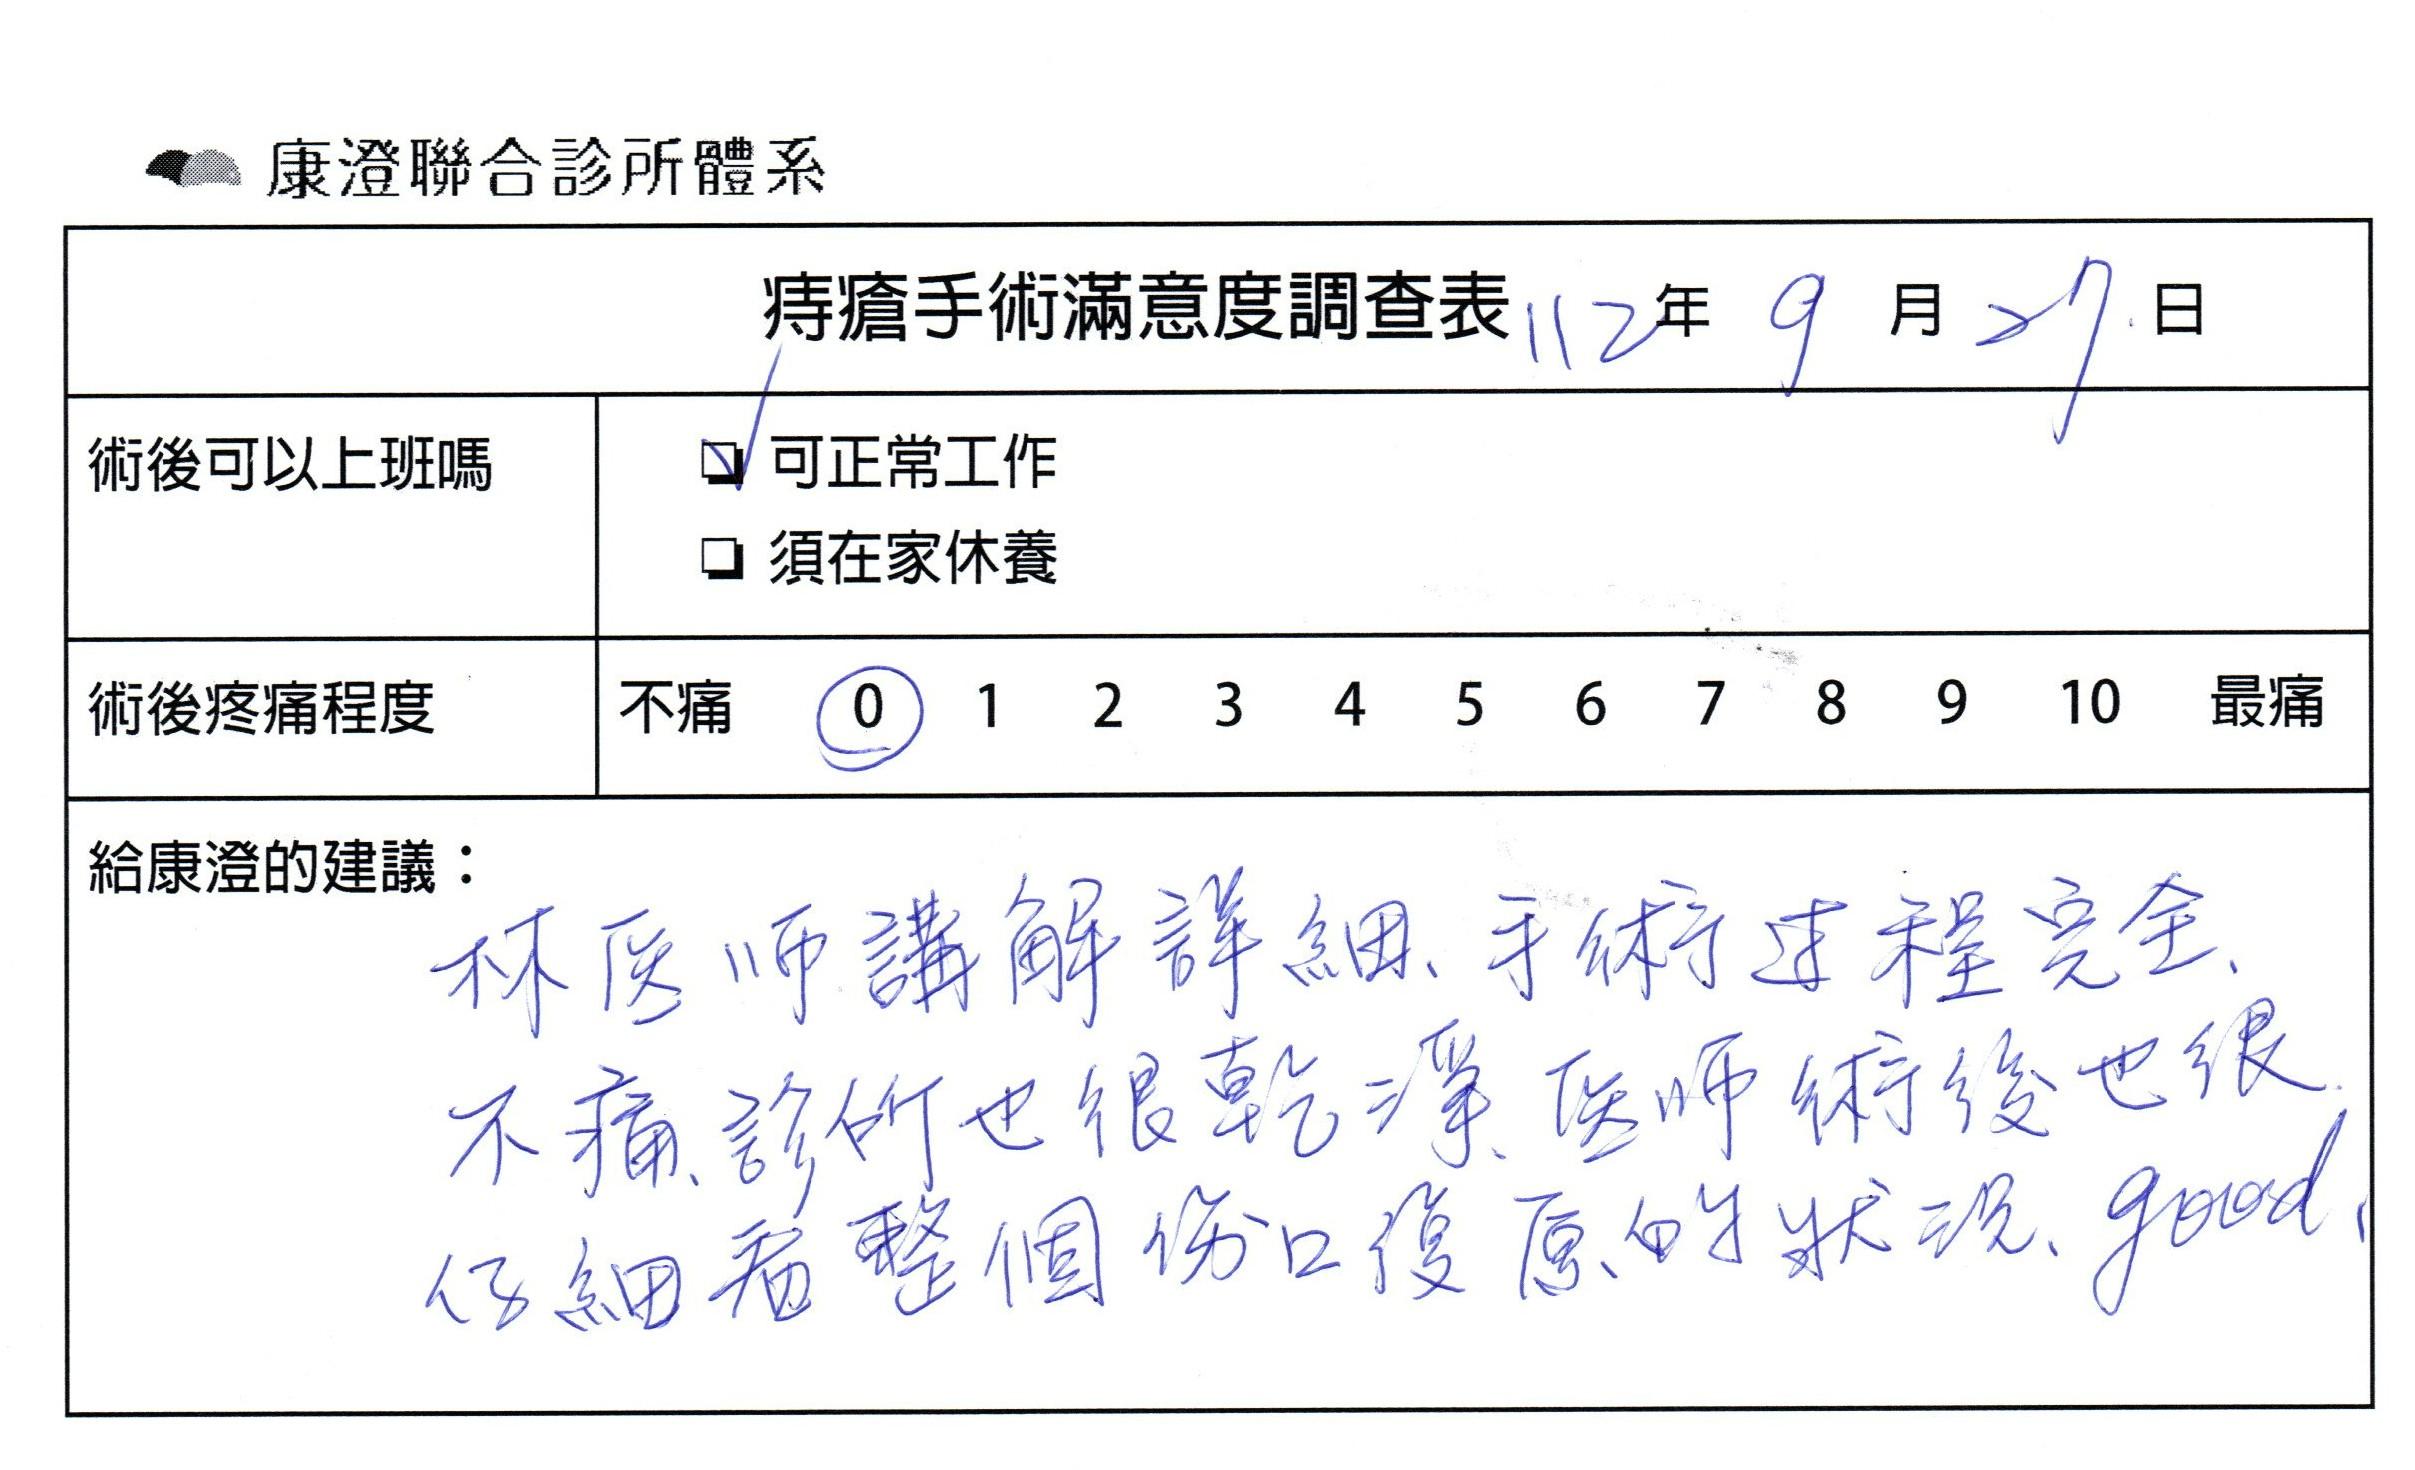 康澄聯合診所體系
痔瘡手術滿意度調查表 112年 9 月 27 日
術後可以上班嗎
可正常工作
須在家休養
術後疼痛程度 不痛 0 1 2 3 4 5 6 7 8 9 10 最痛
給康澄的建議：
林医师講解詳細、手術过程完全、
不痛、診所也很乾淨、医师術後也很
仔細看整個伤口復原的狀况、good,